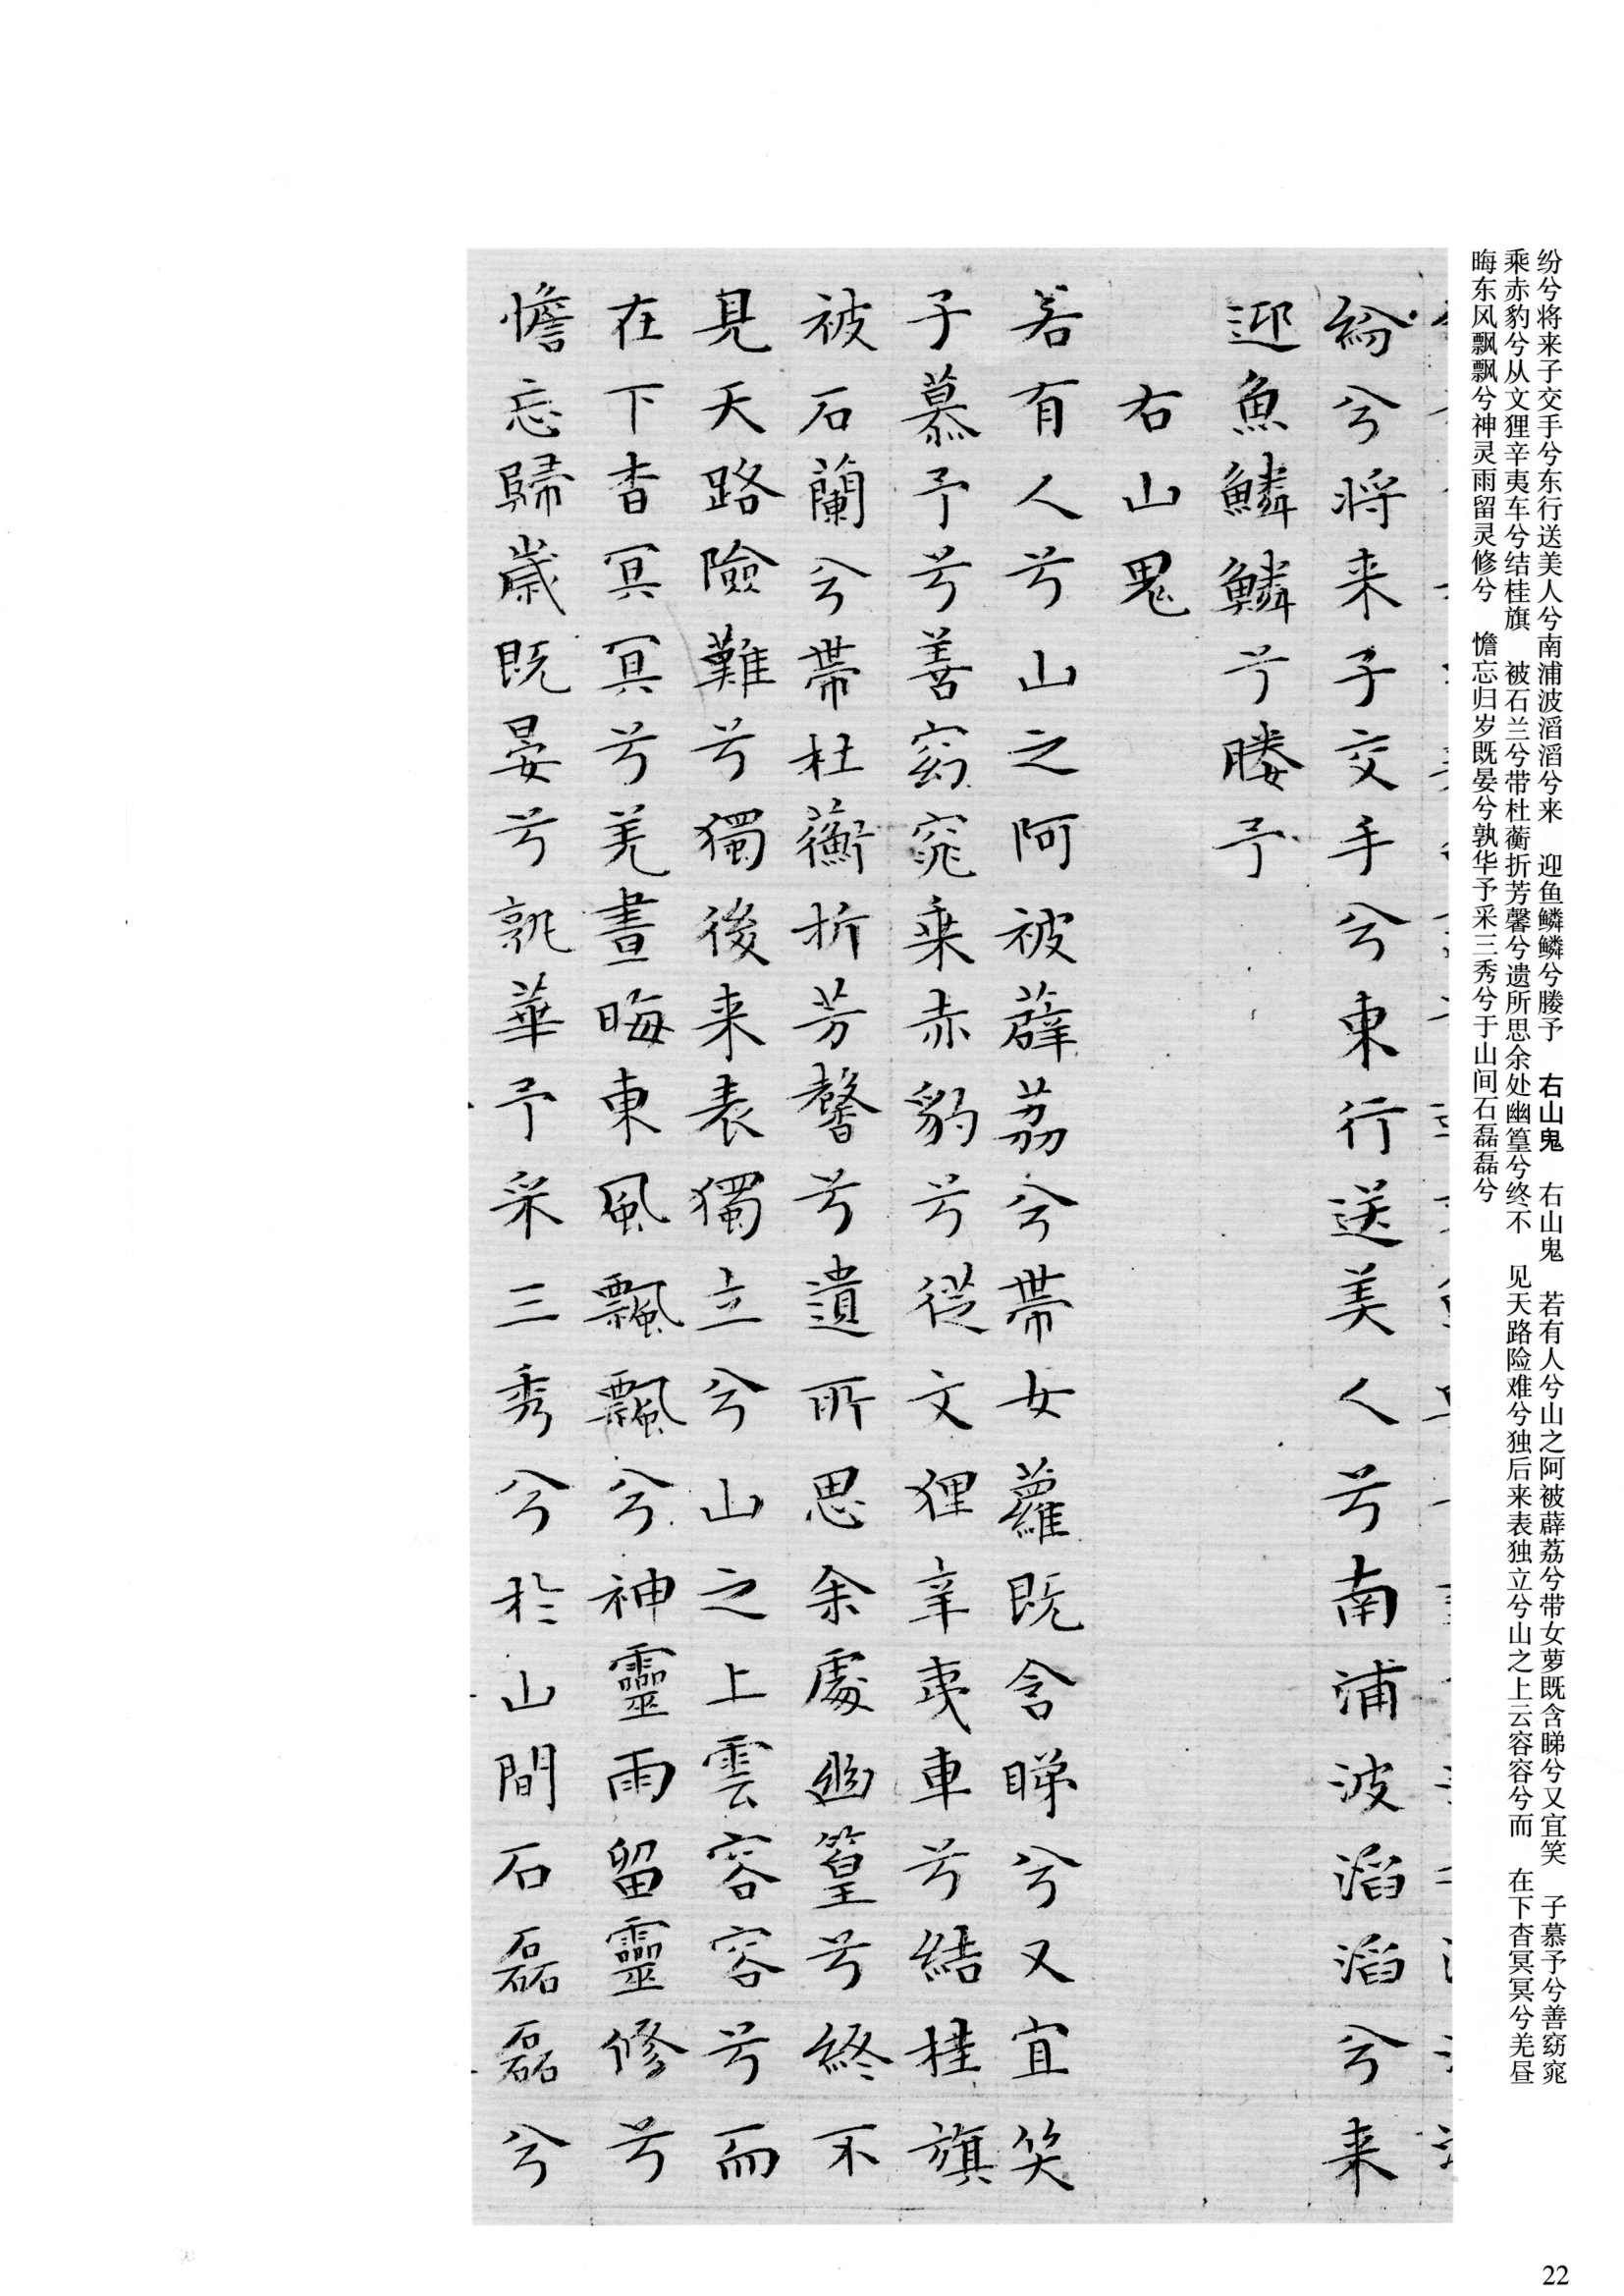 纷兮将来子交手兮东行送美人兮南浦波滔滔兮来　迎鱼鳞鳞兮媵予　右山鬼　右山鬼　若有人兮山之阿被薜荔兮带女萝既含睇兮又宜笑　子慕予兮善窈窕
乘赤豹兮从文狸辛夷车兮结桂旗　被石兰兮带杜蘅折芳馨兮遗所思余处幽篁兮终不　见天路险难兮独后来表独立兮山之上云容容兮而　在下杳冥冥兮羌昼
晦东风飘飘兮神灵雨留灵修兮　憺忘归岁既晏兮孰华予采三秀兮于山间石磊磊兮
紛兮将来子交手兮東行送美人兮南浦波滔滔兮来
迎魚鱗鱗兮媵予
右山鬼
若有人兮山之阿被薜荔兮帶女蘿既含睇兮又宜笑
子慕予兮善窈窕乗赤豹兮從文狸辛夷車兮結桂旗
被石蘭兮帶杜蘅折芳馨兮遺所思余處幽篁兮終不
見天路險難兮獨後来表獨立兮山之上雲容容兮而
在下杳冥冥兮羌晝晦東風飄飄兮神靈雨留靈修兮
憺忘歸歲既晏兮孰華予采三秀兮於山間石磊磊兮
22